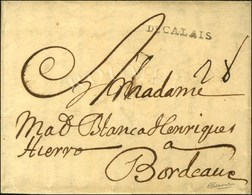 DECALAIS
A Madame 28
Mad Blanca Henriques
Hierro a
Bordeaux